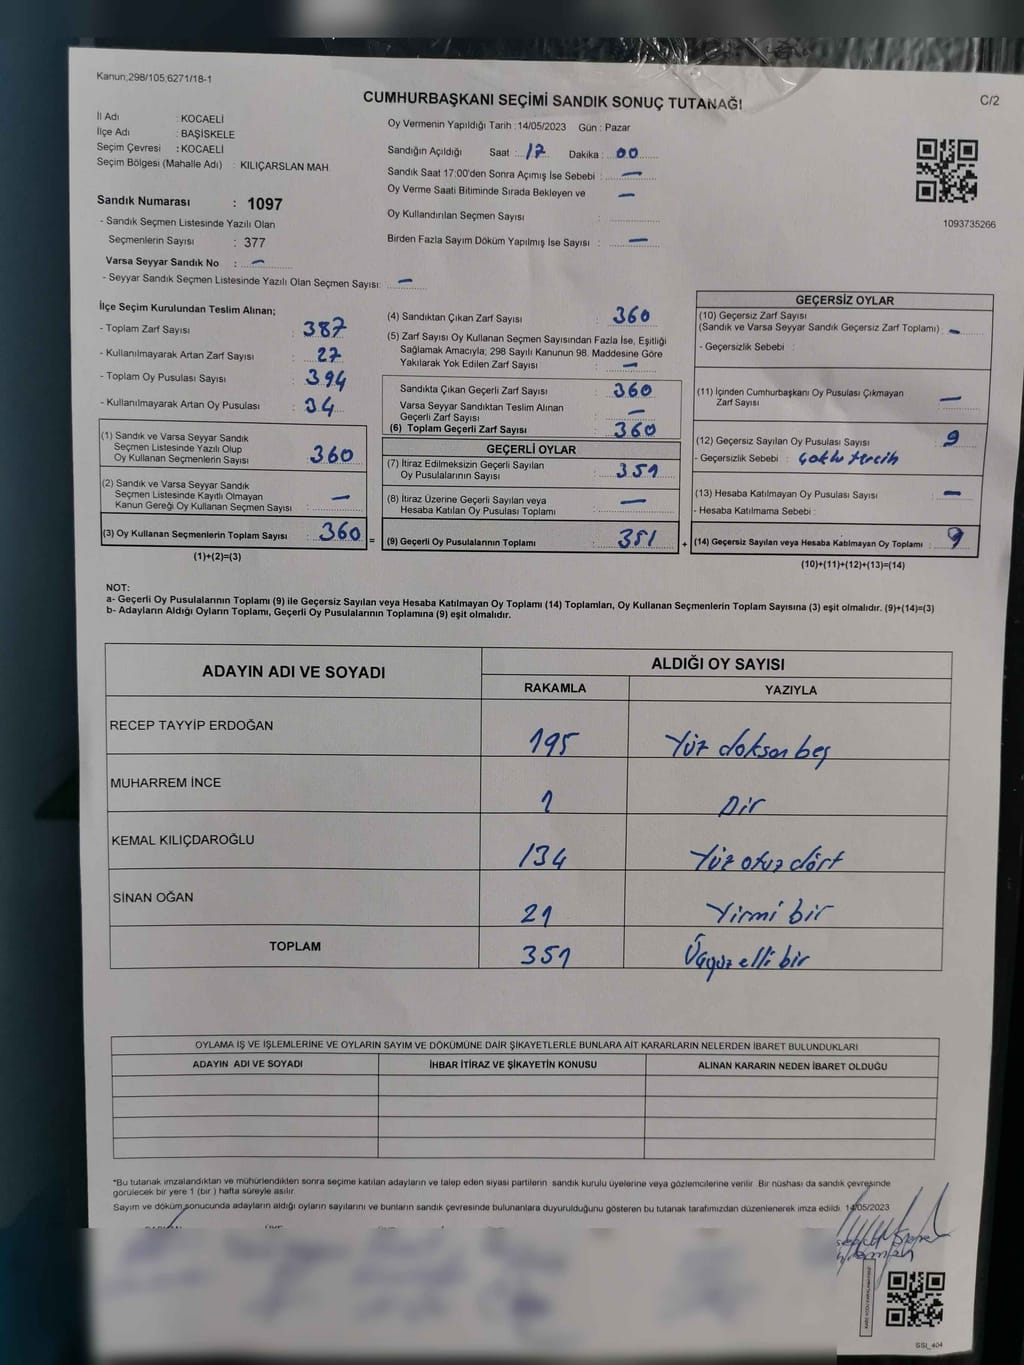 Kanun;298/105;6271/18-1
CUMHURBAŞKANI SEÇİMİ SANDIK SONUÇ TUTANAĞI
C/2
İl Adı : KOCAELİ
İlçe Adı : BAŞİSKELE
Seçim Çevresi : KOCAELİ
Seçim Bölgesi (Mahalle Adı) : KILIÇARSLAN MAH.
Oy Vermenin Yapıldığı Tarih : 14/05/2023 Gün : Pazar
Sandığın Açıldığı Saat : 17 Dakika : 00
Sandık Saat 17:00'den Sonra Açımış İse Sebebi : —
Oy Verme Saati Bitiminde Sırada Bekleyen ve —
Oy Kullandırılan Seçmen Sayısı :
Birden Fazla Sayım Döküm Yapılmış İse Sayısı : —
1093735266
Sandık Numarası : 1097
- Sandık Seçmen Listesinde Yazılı Olan
Seçmenlerin Sayısı : 377
Varsa Seyyar Sandık No : —
- Seyyar Sandık Seçmen Listesinde Yazılı Olan Seçmen Sayısı: —
İlçe Seçim Kurulundan Teslim Alınan;
- Toplam Zarf Sayısı : 387
- Kullanılmayarak Artan Zarf Sayısı : 27
- Toplam Oy Pusulası Sayısı : 394
- Kullanılmayarak Artan Oy Pusulası : 34
(1) Sandık ve Varsa Seyyar Sandık
Seçmen Listesinde Yazılı Olup
Oy Kullanan Seçmenlerin Sayısı : 360
(2) Sandık ve Varsa Seyyar Sandık
Seçmen Listesinde Kayıtlı Olmayan
Kanun Gereği Oy Kullanan Seçmen Sayısı : —
(3) Oy Kullanan Seçmenlerin Toplam Sayısı : 360 =
(1)+(2)=(3)
(4) Sandıktan Çıkan Zarf Sayısı : 360
(5) Zarf Sayısı Oy Kullanan Seçmen Sayısından Fazla İse, Eşitliği
Sağlamak Amacıyla; 298 Sayılı Kanunun 98. Maddesine Göre
Yakılarak Yok Edilen Zarf Sayısı : —
Sandıkta Çıkan Geçerli Zarf Sayısı : 360
Varsa Seyyar Sandıktan Teslim Alınan
Geçerli Zarf Sayısı : —
(6) Toplam Geçerli Zarf Sayısı : 360
GEÇERLİ OYLAR
(7) İtiraz Edilmeksizin Geçerli Sayılan
Oy Pusulalarının Sayısı : 351
(8) İtiraz Üzerine Geçerli Sayılan veya
Hesaba Katılan Oy Pusulası Toplamı : —
(9) Geçerli Oy Pusulalarının Toplamı : 351 +
GEÇERSİZ OYLAR
(10) Geçersiz Zarf Sayısı
(Sandık ve Varsa Seyyar Sandık Geçersiz Zarf Toplamı) : —
- Geçersizlik Sebebi :
(11) İçinden Cumhurbaşkanı Oy Pusulası Çıkmayan
Zarf Sayısı : —
(12) Geçersiz Sayılan Oy Pusulası Sayısı : 9
- Geçersizlik Sebebi : Çoklu tercih
(13) Hesaba Katılmayan Oy Pusulası Sayısı : —
- Hesaba Katılmama Sebebi :
(14) Geçersiz Sayılan veya Hesaba Katılmayan Oy Toplamı : 9
(10)+(11)+(12)+(13)=(14)
NOT:
a- Geçerli Oy Pusulalarının Toplamı (9) ile Geçersiz Sayılan veya Hesaba Katılmayan Oy Toplamı (14) Toplamları, Oy Kullanan Seçmenlerin Toplam Sayısına (3) eşit olmalıdır. (9)+(14)=(3)
b- Adayların Aldığı Oyların Toplamı, Geçerli Oy Pusulalarının Toplamına (9) eşit olmalıdır.
ADAYIN ADI VE SOYADI
ALDIĞI OY SAYISI
RAKAMLA YAZIYLA
RECEP TAYYİP ERDOĞAN 195 Yüz doksan beş
MUHARREM İNCE 1 Bir
KEMAL KILIÇDAROĞLU 134 Yüz otuz dört
SİNAN OĞAN 21 Yirmi bir
TOPLAM 351 Üçyüz elli bir
OYLAMA İŞ VE İŞLEMLERİNE VE OYLARIN SAYIM VE DÖKÜMÜNE DAİR ŞİKAYETLERLE BUNLARA AİT KARARLARIN NELERDEN İBARET BULUNDUKLARI
ADAYIN ADI VE SOYADI İHBAR İTİRAZ VE ŞİKAYETİN KONUSU ALINAN KARARIN NEDEN İBARET OLDUĞU
*Bu tutanak imzalandıktan ve mühürlendikten sonra seçime katılan adayların ve talep eden siyasi partilerin sandık kurulu üyelerine veya gözlemcilerine verilir. Bir nüshası da sandık çevresinde
görülecek bir yere 1 (bir ) hafta süreyle asılır.
Sayım ve döküm sonucunda adayların aldığı oyların sayılarını ve bunların sandık çevresinde bulunanlara duyurulduğunu gösteren bu tutanak tarafımızdan düzenlenerek imza edildi. 14/05/2023
SSI_404